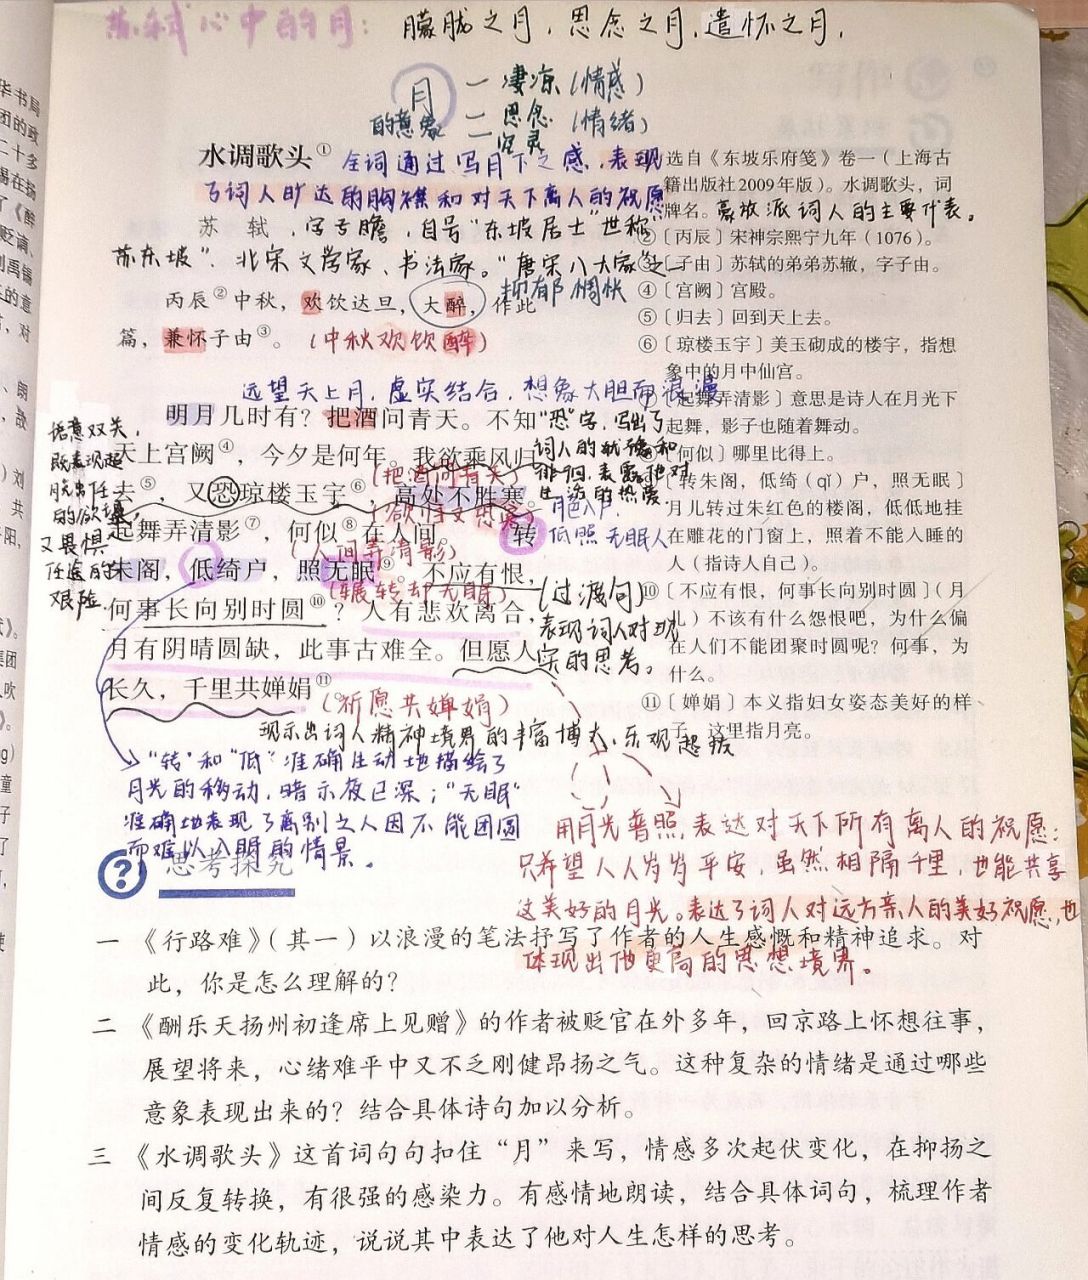 苏轼心中的月：朦胧之月，思念之月，遣怀之月，
月 一 凄凉（情感）
的意象 二 思念（情绪）
水调歌头① 全词通过写月下之感，表现
了词人旷达的胸襟和对天下离人的祝愿
苏轼，字子瞻，自号“东坡居士”世称
苏东坡”，北宋文学家、书法家。“唐宋八大家之一
抑郁惆怅
丙辰②中秋，欢饮达旦，大醉，作此
篇，兼怀子由③。（中秋欢饮醉）
远望天上月，虚实结合，想象大胆而浪漫
明月几时有？把酒问青天。不知
天上宫阙④，今夕是何年。我欲乘风归
（把酒问青天）
去⑤，又恐琼楼玉宇⑥，高处不胜寒。
起舞弄清影⑦，何似⑧在人间。 转
（人间弄清影）
朱阁，低绮户，照无眠⑨。不应有恨，
（辗转却无眠）
何事长向别时圆⑩？人有悲欢离合，
月有阴晴圆缺，此事古难全。但愿人
长久，千里共婵娟⑪。
（祈愿共婵娟）
语意双关，
既表现超
脱出任
的欲望，
又畏惧
仕途的
艰险
“恐”字，写出了
词人的犹豫和
徘徊，表露他对
生活的热爱
月色入户，
低照无眠人
（过渡句）
表现词人对现
实的思考。
现示出词人精神境界的丰富博大，乐观超旷
“转”和“低”准确生动地描绘了
月光的移动，暗示夜已深；“无眠”
准确地表现了离别之人因不能团圆
而难以入眠的情景。
用月光普照表达对天下所有离人的祝愿：
只希望人人岁岁平安，虽然相隔千里，也能共享
这美好的月光。表达了词人对远方亲人的美好祝愿，也
体现出他更高的思想境界。
选自《东坡乐府笺》卷一（上海古
籍出版社2009年版）。水调歌头，词
牌名。豪放派词人的主要代表。
②〔丙辰〕宋神宗熙宁九年（1076）。
③〔子由〕苏轼的弟弟苏辙，字子由。
④〔宫阙〕宫殿。
⑤〔归去〕回到天上去。
⑥〔琼楼玉宇〕美玉砌成的楼宇，指想
象中的月中仙宫。
起舞弄清影〕意思是诗人在月光下
起舞，影子也随着舞动。
何似〕哪里比得上。
〔转朱阁，低绮（qǐ）户，照无眠〕
月儿转过朱红色的楼阁，低低地挂
在雕花的门窗上，照着不能入睡的
人（指诗人自己）。
⑩〔不应有恨，何事长向别时圆〕（月
儿）不该有什么怨恨吧，为什么偏
在人们不能团聚时圆呢？何事，为
什么。
⑪〔婵娟〕本义指妇女姿态美好的样
子，这里指月亮。
思考探究
一 《行路难》（其一）以浪漫的笔法抒写了作者的人生感慨和精神追求。对
此，你是怎么理解的？
二 《酬乐天扬州初逢席上见赠》的作者被贬官在外多年，回京路上怀想往事，
展望将来，心绪难平中又不乏刚健昂扬之气。这种复杂的情绪是通过哪些
意象表现出来的？结合具体诗句加以分析。
三 《水调歌头》这首词句句扣住“月”来写，情感多次起伏变化，在抑扬之
间反复转换，有很强的感染力。有感情地朗读，结合具体词句，梳理作者
情感的变化轨迹，说说其中表达了他对人生怎样的思考。